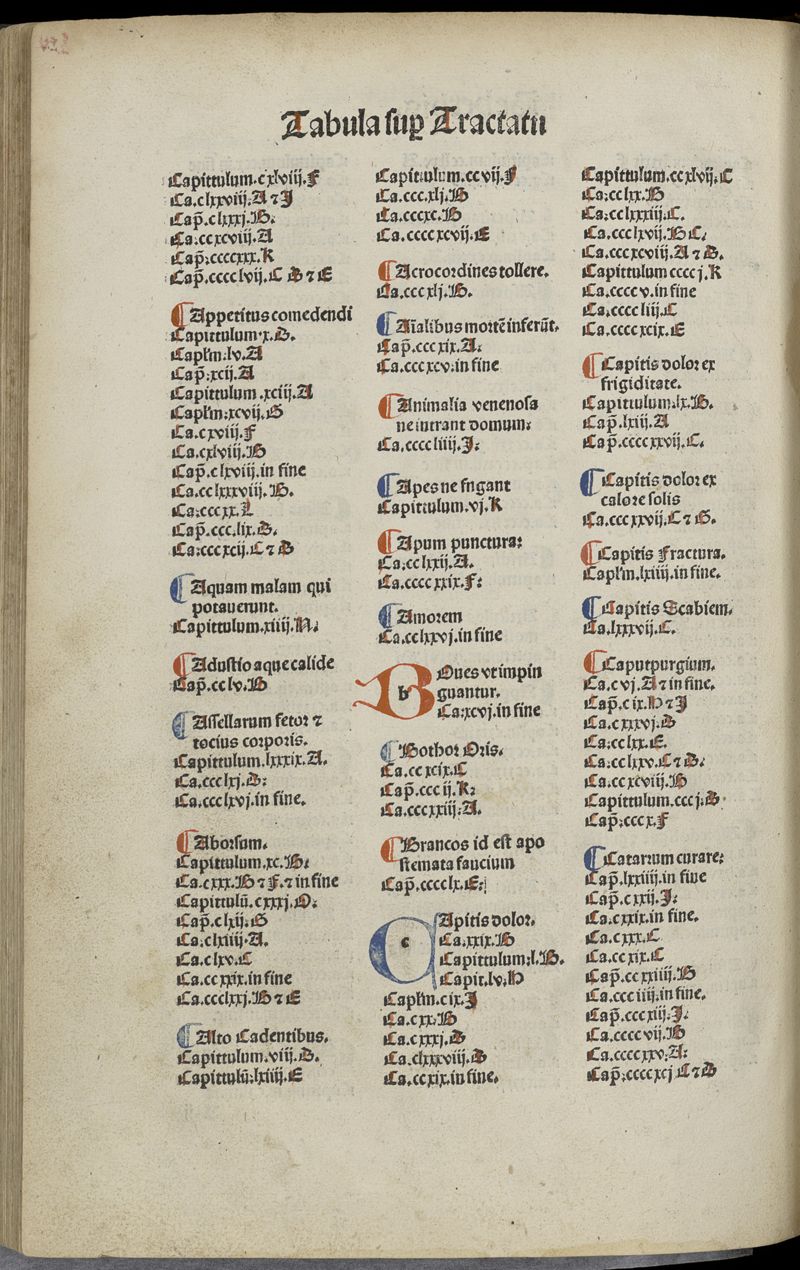 Tabula sup̲ Tractatu
Capittulum.cxlviij.F
Ca.clxxviij.A ⁊ J
Cap̃.clxxxj.B.
Ca:ccxcviij.A
Cap̃:ccccxxx.K
Cap̃.cccclvij.C D ⁊ E
Appetitus comedendi
Capittulum.x.D.
Caplm̃:lv.A
Cap̃:xcij.A
Capittulum.xciij.A
Caplm̃:xcvij.G
Ca.cxviij.F
Ca.cxlviij.B
Cap̃.clxviij.in fine
Ca.cclxxxviij.B.
Ca:cccxx.L
Cap̃.ccc.lix.D.
Ca:cccxcij.C ⁊ D
Aquam malam qui
potauerunt.
Capittulum.xiiij.N.
Adustio aque calide
Cap̃.cclv.B
Assellarum fetor ⁊
tocius corporis.
Capittulum.lxxxix.A.
Ca.ccclxj.D:
Ca.ccclxvj.in fine.
Aborsum.
Capittulum.xc.B:
Ca.cxxx.B ⁊ F.⁊ in fine
Capittulū.cxxxj.O:
Cap̃.clxij.G
Ca:clxiiij.A.
Ca.clxv.C
Ca.ccxxix.in fine
Ca.ccclxxj.B ⁊ E
Alto Cadentibus.
Capittulum.viij.D.
Capittulū:lxiiij.E
Capittulum.ccvij.F
Ca.cccxlj.B
Ca.cccxc.B
Ca.ccccxcvij.E
Acrocordines tollere.
Ca.cccxlj.B.
Aīalibus mortē inferūt.
Cap̃.cccxix.A:
Ca.cccxcv:in fine
Animalia venenosa
ne intrant domum:
Ca.ccccliiij.J:
Apes ne fugant
Capittulum.vj.K
Apum punctura:
Ca:cclxxij.A.
Ca.ccccxxix.F:
Amorem
Ca.cclxxvj.in fine
b
BOues vt impin
guantur.
Ca:xcvj.in fine
Bothor Oris.
Ca.ccxcix.C
Cap̃.cccij.K:
Ca.cccxxiij:A.
Brancos id est apo
stemata faucium
Cap̃.cccclx.E:
c
CApitis dolor.
Ca.xxix.B
Capittulum:l.B.
Capit.lv.H
Caplm̃.cix.J
Ca.cxx.B
Ca.cxxxj.D
Ca.clxxxviij.D
Ca.ccxix.in fine.
Capittulum.ccxlvij.C
Ca:cclxx.B
Ca:cclxxxiij.C.
Ca.ccclxvij.B C.
Ca.cccxcviij.A ⁊ D.
Capittulum ccccj.K
Ca.ccccv.in fine
Ca.ccccliij.C
Ca.ccccxcix.E
Capitis dolor ex
frigiditate.
Capittulum.lx.B.
Cap̃.lxiij.A
Cap̃.ccccxxvij.C.
Capitis dolor ex
calore solis
Ca.cccxxvij.C ⁊ G.
Capitis Fractura.
Caplm̃.lxiiij.in fine.
Capitis Scabiem.
Ca.lxxxvij.C.
Caputpurgium.
Ca.cvj.A ⁊ in fine.
Cap̃.cix.H ⁊ J
Ca.cxxxvj.D
Ca:cclxx.E.
Ca:cclxxv.C ⁊ D.
Ca.ccxcviij.B
Capittulum.cccj.D
Cap̃:cccx.F
Catarrum curare:
Cap̃.lxxiiij.in fine
Cap̃.cxxij.J:
Ca.cxxix.in fine.
Ca.cxxx.C
Ca.ccxix.C
Cap̃.ccxxiiij.B
Ca.ccciiij.in fine.
Cap̃.cccxiij.J.
Ca.ccccvij.B
Ca.ccccxxv.A:
Cap̃:ccccxcj C ⁊ D